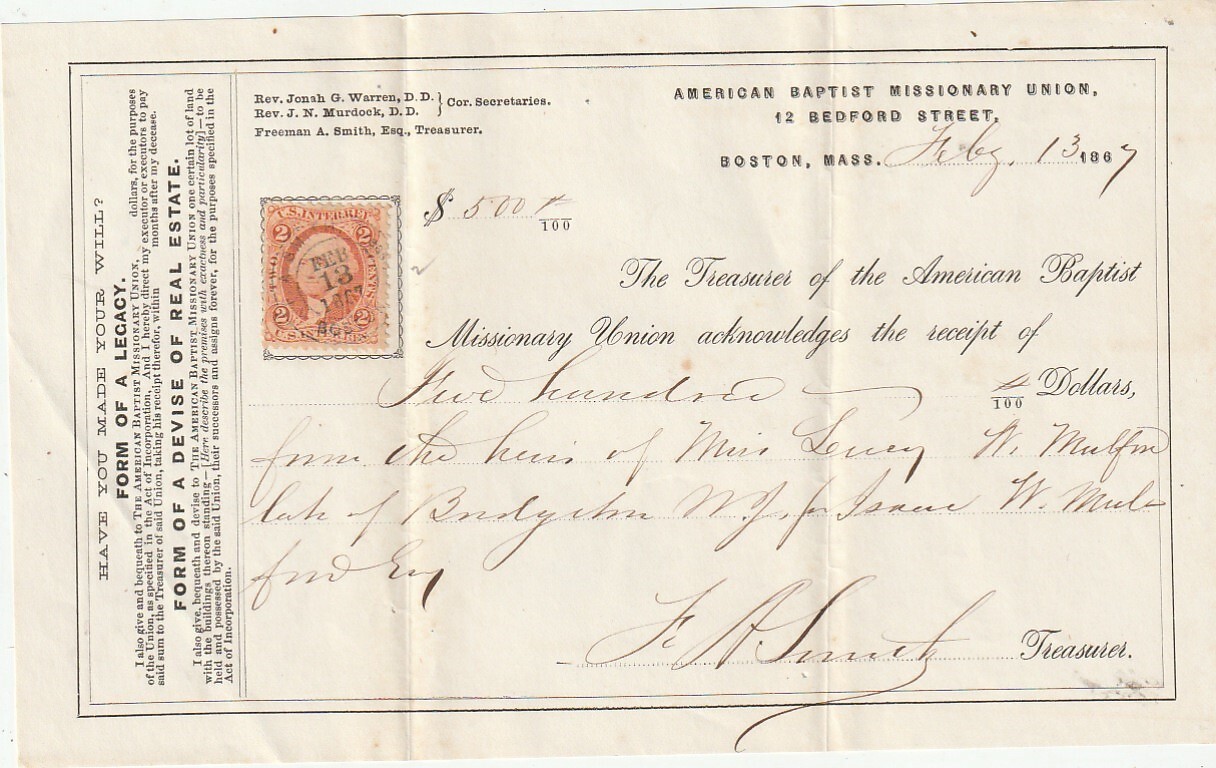 Rev. Jonah G. Warren, D.D.
Rev. J. N. Murdock, D.D. } Cor. Secretaries.
Freeman A. Smith, Esq., Treasurer.
AMERICAN BAPTIST MISSIONARY UNION,
12 BEDFORD STREET,
BOSTON, MASS. Feby. 13 1867
$ 500 /100
U.S. INTER. REV.
2 2
TWO CENTS
FEB
13
1867
BOS
2 2
The Treasurer of the American Baptist
Missionary Union acknowledges the receipt of
Five hundred /100 Dollars,
from the heirs of Miss Lucy W. Mulford
late of Bridgeton N.J. for Isaac W. Mul-
ford Esq
F A Smith Treasurer.
HAVE YOU MADE YOUR WILL?
FORM OF A LEGACY.
I also give and bequeath to THE AMERICAN BAPTIST MISSIONARY UNION, dollars, for the purposes
of the Union, as specified in the Act of Incorporation. And I hereby direct my executor or executors to pay
said sum to the Treasurer of said Union, taking his receipt therefor, within months after my decease.
FORM OF A DEVISE OF REAL ESTATE.
I also give, bequeath and devise to THE AMERICAN BAPTIST MISSIONARY UNION one certain lot of land
with the buildings thereon standing—[Here describe the premises with exactness and particularity]—to be
held and possessed by the said Union, their successors and assigns forever, for the purposes specified in the
Act of Incorporation.